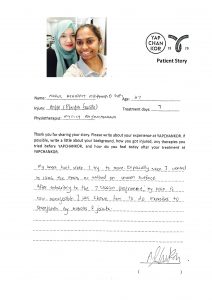 YAP
CHAN
KOR
Patient Story
Name: Age: 47
Injury: Ankle (Plantar Fasciitis) Treatment days: 7
Physiotherapist:
Thank you for sharing your story. Please write about your experience at YAPCHANKOR. If
possible, write a little about your background, how you got injured, any therapies you
tried before YAPCHANKOR, and how do you feel today after your treatment at
YAPCHANKOR.
My heel hurt when I try to move. Especially when I wanted
to climb the stairs or walked on uneven surface.
After subscribing to the 7 session programme, my pain is
now manageable. I was shown how to do exercises to
strengthen my muscle & joints.